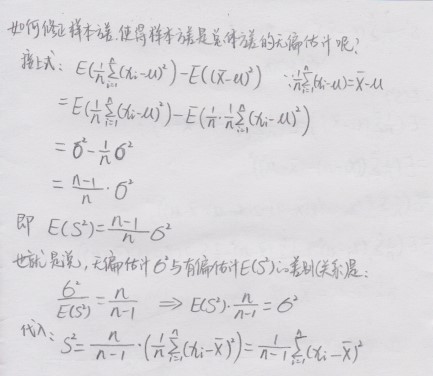 如何修正样本方差,使得样本方差是总体方差的无偏估计呢?
接上式: E(1/n ∑_{i=1}^{n}(xᵢ-u)²)-E((x̄-u)²) ∵ 1/n ∑_{i=1}^{n}(xᵢ-u)=x̄-u
=E(1/n ∑_{i=1}^{n}(xᵢ-u)²)-E(1/n·1/n ∑_{i=1}^{n}(xᵢ-u)²)
=σ²-1/n σ²
=(n-1)/n·σ²
即 E(S²)=(n-1)/n σ²
也就是说,无偏估计σ²与有偏估计E(S²)的差别(关系)是:
σ²/E(S²)=n/(n-1) ⇒ E(S²)·n/(n-1)=σ²
代入: S²=n/(n-1)·(1/n ∑_{i=1}^{n}(xᵢ-x̄)²)=1/(n-1) ∑_{i=1}^{n}(xᵢ-x̄)²